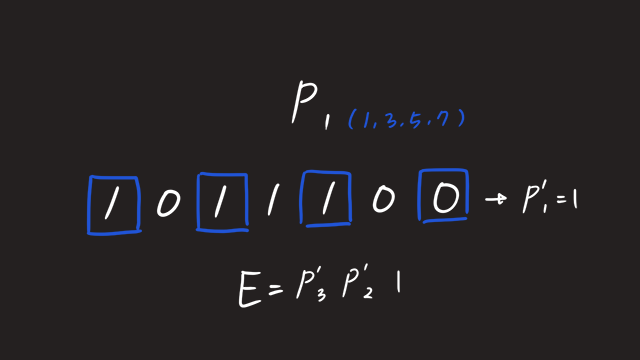 P₁ (1,3,5,7)
1 0 1 1 1 0 0 → P₁′ = 1
E = P₃′ P₂′ 1